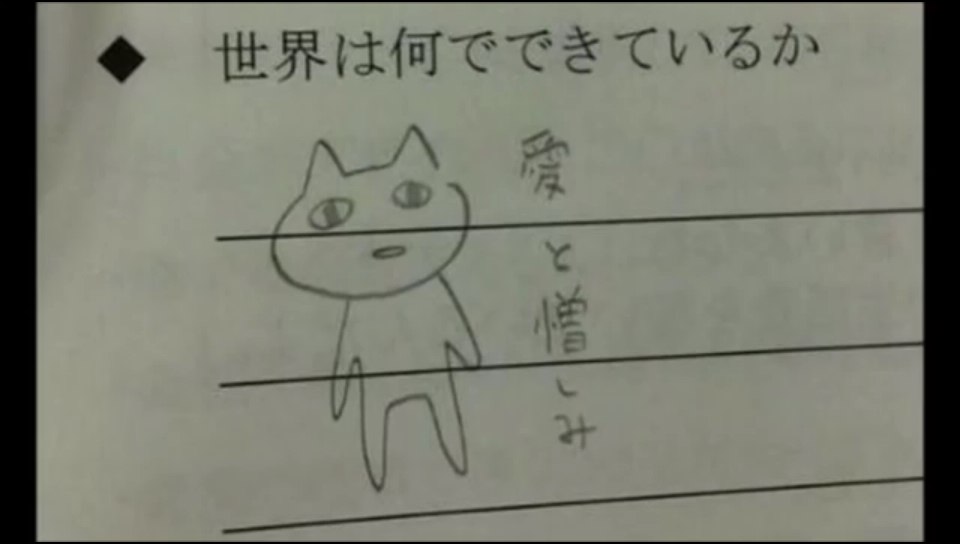 ◆ 世界は何でできているか
愛と憎しみ